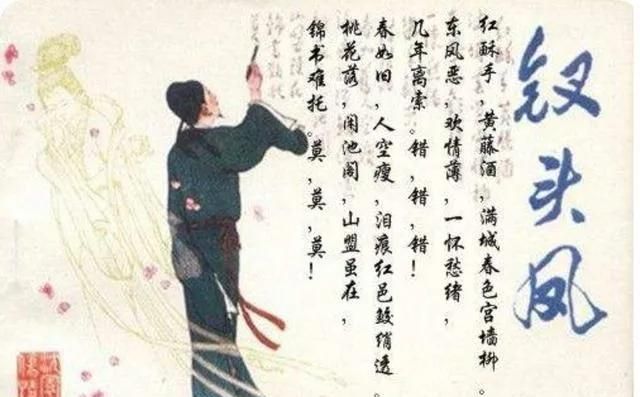 钗头凤
红酥手，黄藤酒，满城春色宫墙柳。
东风恶，欢情薄，一怀愁绪，
几年离索。错，错，错！
春如旧，人空瘦，泪痕红邑鲛绡透。
桃花落，闲池阁，山盟虽在，
锦书难托。莫，莫，莫！